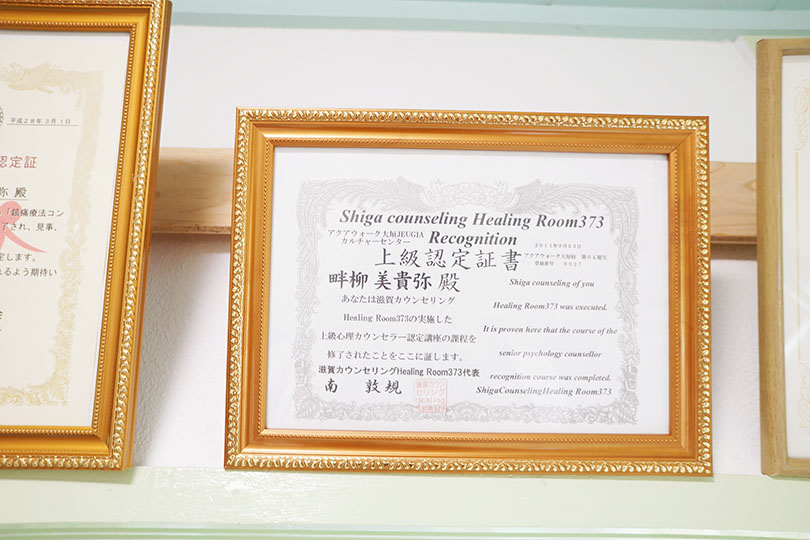 平成28年3月1日
認定証
弥 殿
「鎮痛療法コン
了され、見事、
定します。
れるよう期待い
Shiga counseling Healing Room373
アクアウォーク大垣JEUGIA
カルチャーセンター
Recognition
2011年9月24日
上級認定証書
アクアウォーク大垣校 第04期生
登録番号 0027
畔柳 美貴弥 殿
Shiga counseling of you
あなたは滋賀カウンセリング
Healing Room373 was executed.
Healing Room373の実施した
It is proven here that the course of the
上級心理カウンセラー認定講座の課程を
senior psychology counsellor
修了されたことをここに証します。
recognition course was completed.
滋賀カウンセリングHealing Room373代表
ShigaCounselingHealing Room373
南 敦規